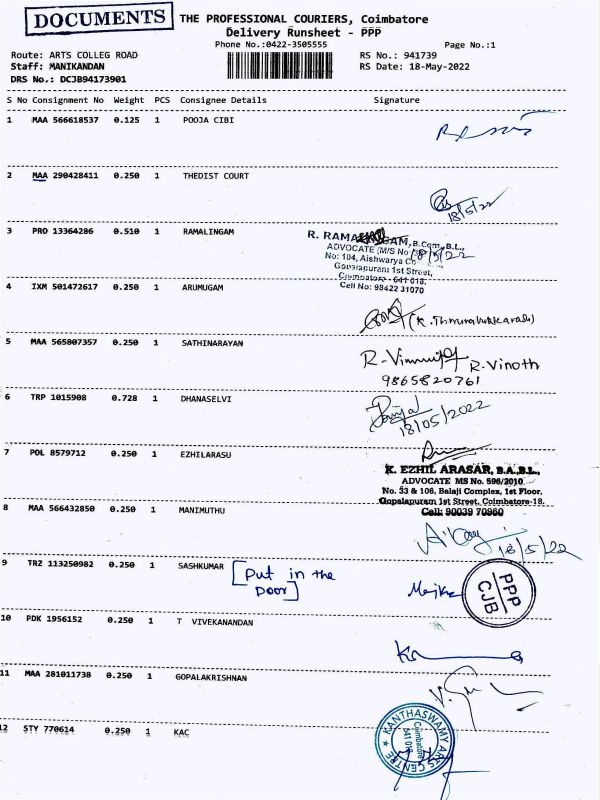 DOCUMENTS
THE PROFESSIONAL COURIERS, Coimbatore
Delivery Runsheet - PPP
Phone No.:0422-3505555
Page No.:1
Route: ARTS COLLEG ROAD
RS No.: 941739
Staff: MANIKANDAN
RS Date: 18-May-2022
DRS No.: DCJB94173901
S No Consignment No Weight PCS Consignee Details Signature
1 MAA 566618537 0.125 1 POOJA CIBI
2 MAA 290428411 0.250 1 THEDIST COURT
18/5/22
3 PRO 13364286 0.510 1 RAMALINGAM
R. RAMALINGAM, B.Com., B.L.,
ADVOCATE (M/S No 18/5/22
No: 104, Aishwarya
Gopalapuram 1st Street,
Coimbatore - 641 018.
Cell No: 98422 31070
4 IXM 501472617 0.250 1 ARUMUGAM
5 MAA 565807357 0.250 1 SATHINARAYAN
R. Vinoth
9865820761
6 TRP 1015908 0.728 1 DHANASELVI
18/05/2022
7 POL 8579712 0.250 1 EZHILARASU
K. EZHIL ARASAR, B.A.B.L.,
ADVOCATE MS No. 596/2010
No. 33 & 106, Balaji Complex, 1st Floor,
Gopalapuram 1st Street, Coimbatore-18.
Cell: 90039 70960
8 MAA 566432850 0.250 1 MANIMUTHU
18/5/22
9 TRZ 113250982 0.250 1 SASHKUMAR [Put in the
Door]
PPP
CJB
10 PDK 1956152 0.250 1 T VIVEKANANDAN
11 MAA 281011738 0.250 1 GOPALAKRISHNAN
12 STY 770614 0.250 1 KAC
KANTHASWAMY ARTS CENTRE
Coimbatore
641 018